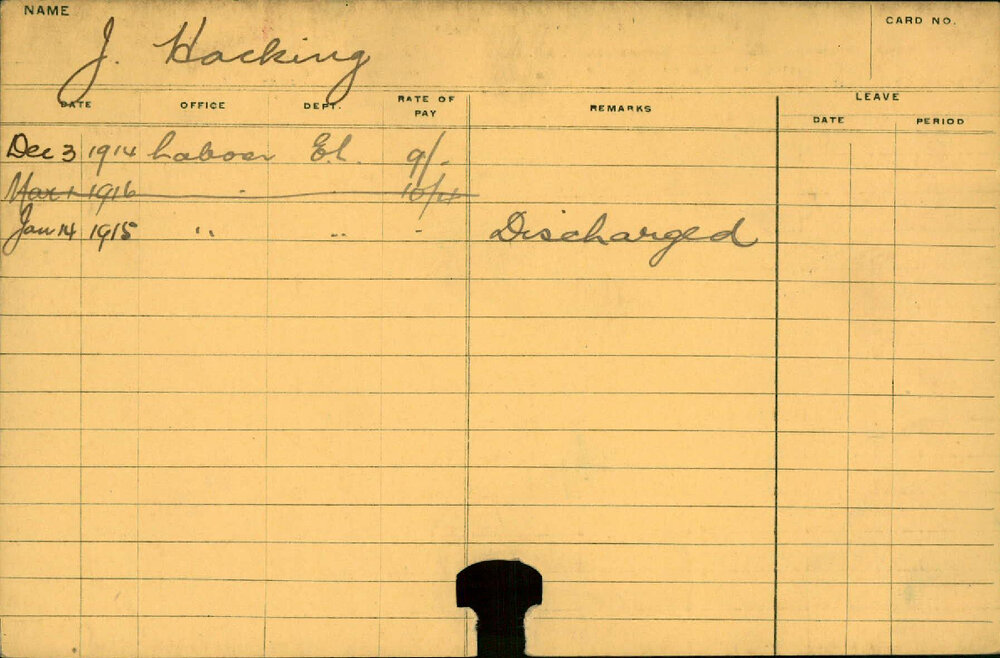 NAME
CARD NO.
J. Hocking
DATE OFFICE DEPT. RATE OF PAY REMARKS LEAVE
DATE PERIOD
Dec 3 1914 Labour El. 9/-
Mar 1 1916 " " 10/4
Jan 14 1915 " " " Discharged